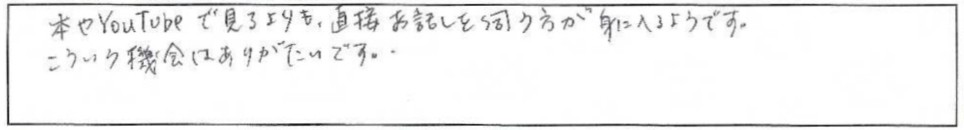 本やYouTubeで見るよりも、直接お話しを伺う方が身に入るようです。
こういう機会はありがたいです。